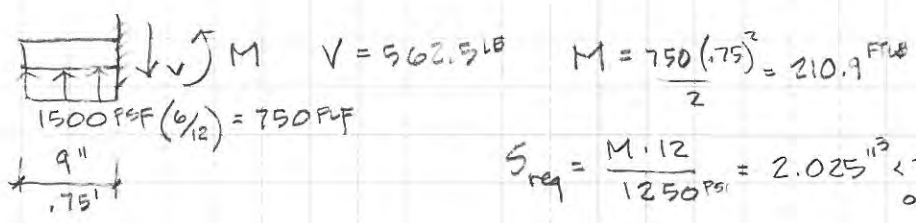 M V = 562.5 LB M = 750(.75)² / 2 = 210.9 FTLB
V
1500 PSF (6/12) = 750 PLF
9"
.75'
S req = M·12 / 1250 PSI = 2.025 "³ <